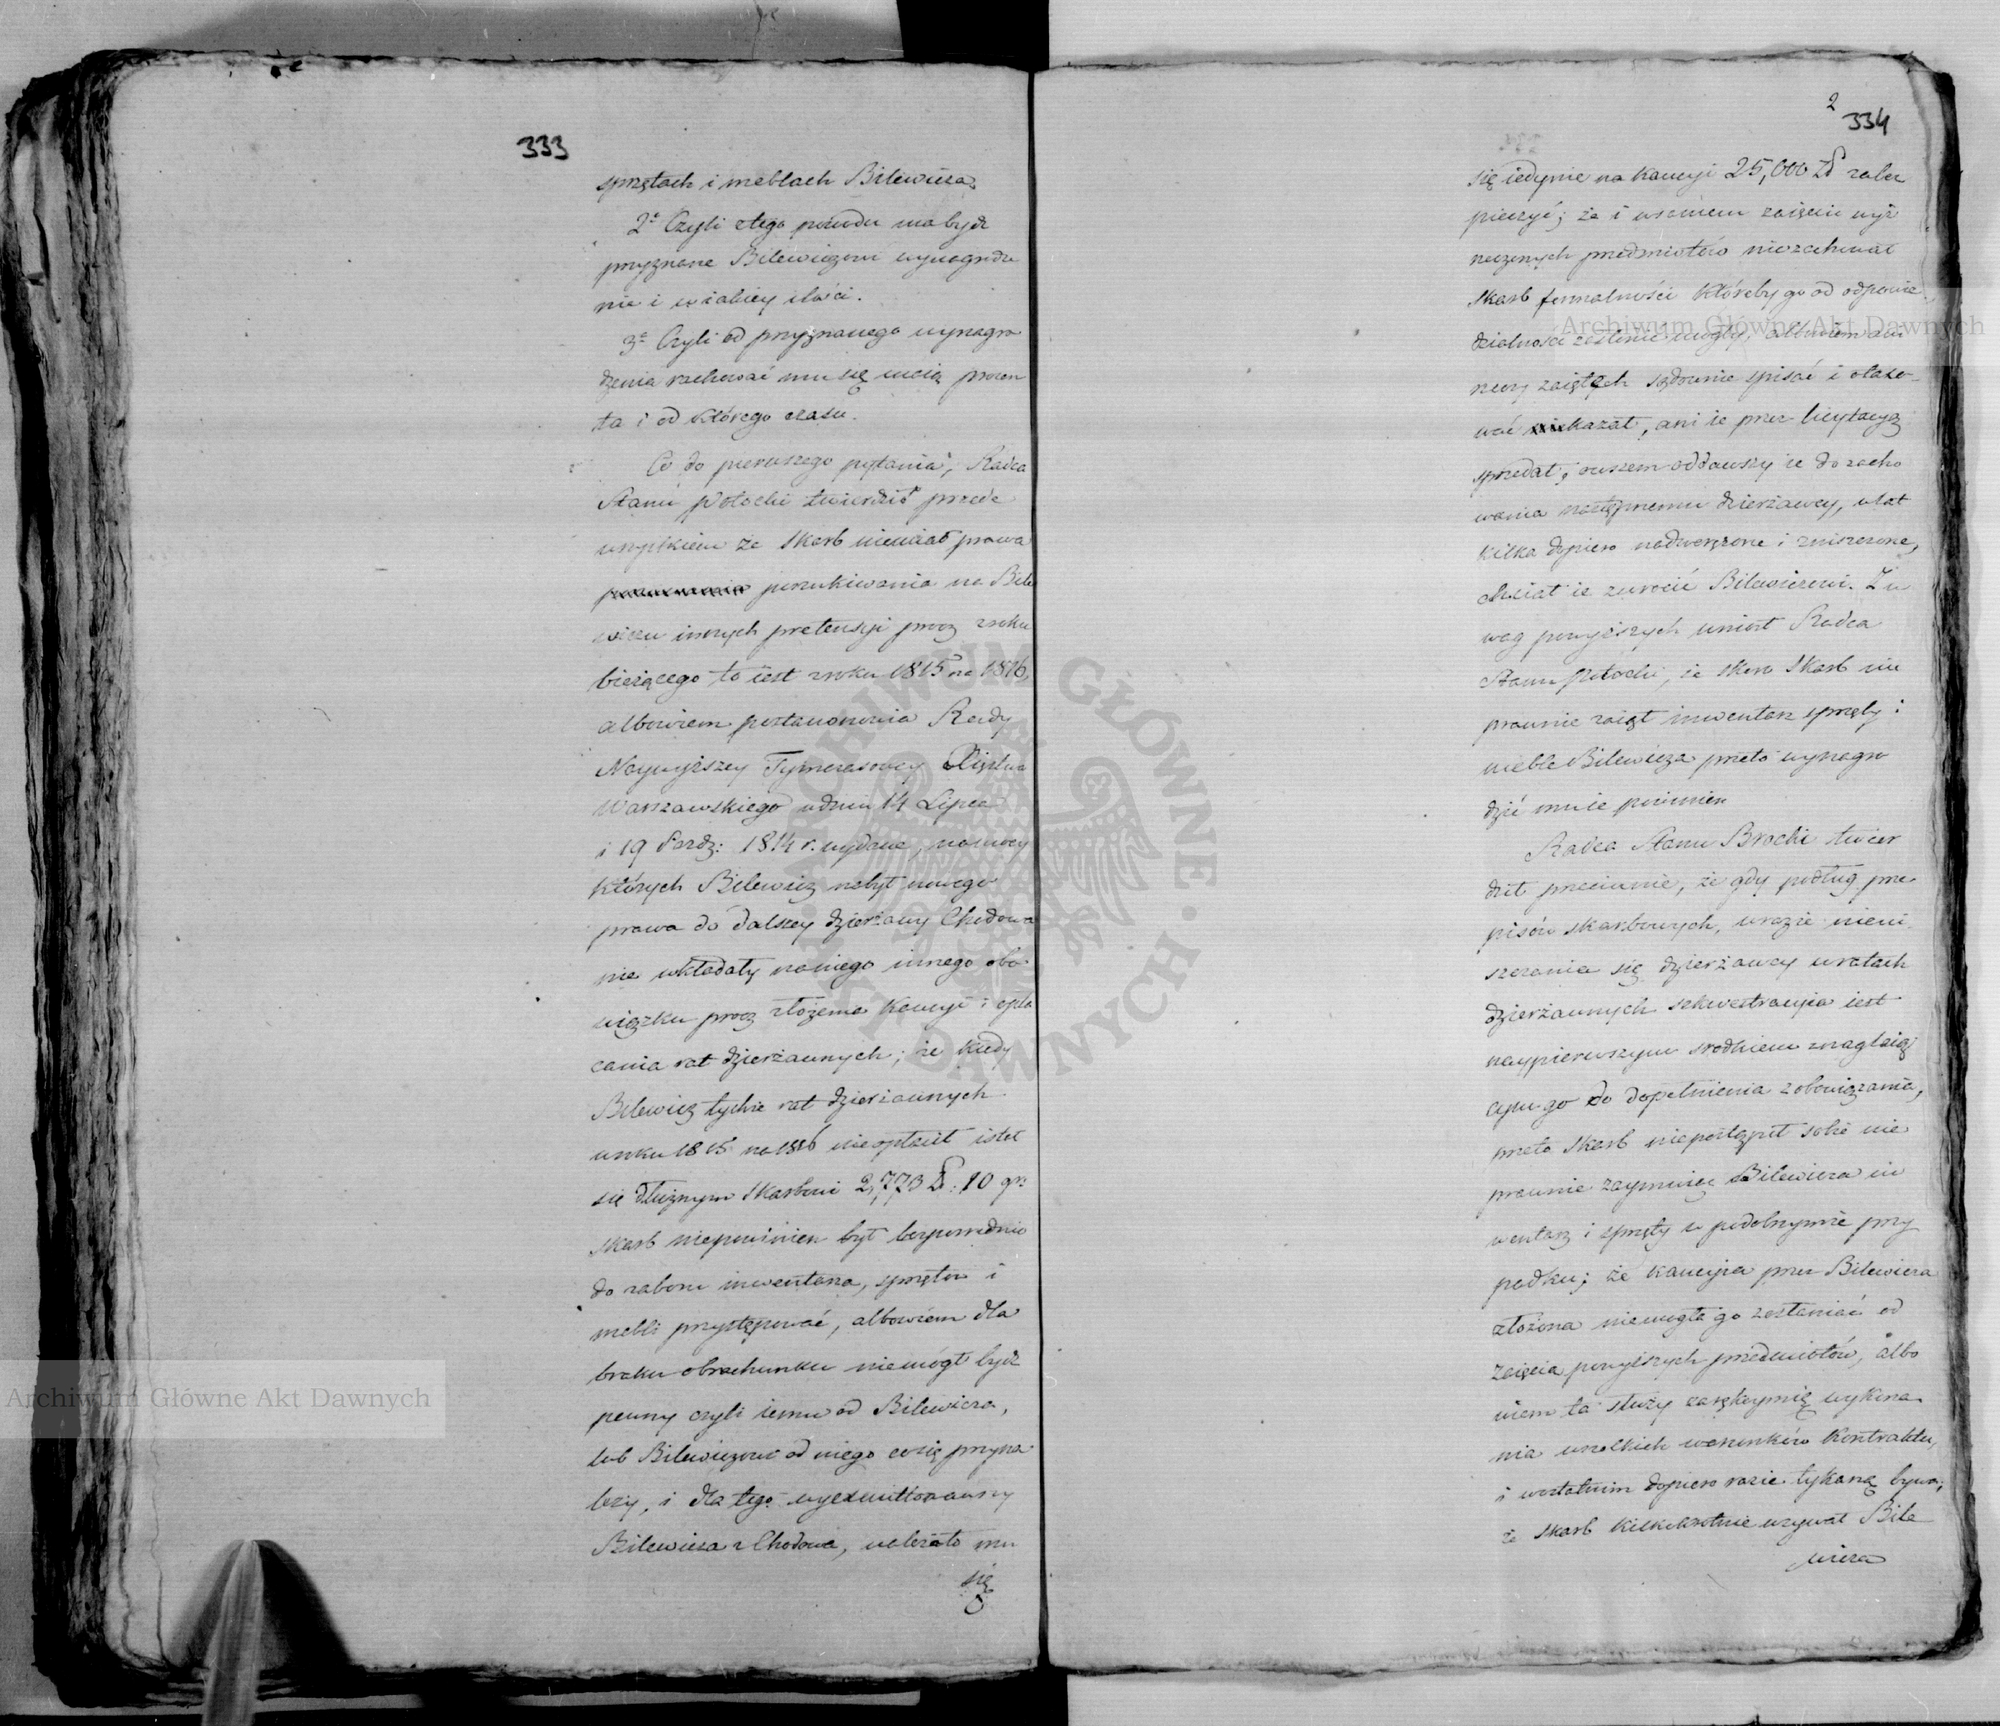 333
sprzętach i meblach Bilewicza.
2e Czyli z tego powodu ma bydź
przyznane Bilewiczowi wynagrodze
nie i w iakiey ilości.
3e Czyli od przyznanego wynagro
dzenia rachować mu się maią procen
ta i od którego czasu.
Co do pierwszego pytania, Radca
Stanu Potocki twierdził przede
wszystkiem że Skarb niemiał prawa
poszukiwania na Bile
wiczu innych pretensyi procz z roku
bieżącego to iest z roku 1815 na 1816,
albowiem postanowienia Rady
Naywyższey Tymczasowey Xięstwa
Warszawskiego w dniu 14 Lipca
i 19 Pazdz: 1814 r. wydane, na mocy
których Bilewicz nabył nowego
prawa do dalszey dzierżawy Chodowa
nie wkładały na niego innego obo
wiązku procz złożenia Kaucyi i opła
cania rat dzierżawnych; że kiedy
Bilewicz tychże rat dzierżawnych
w roku 1815 na 1816 nie opłacił i stał
się dłużnym Skarbowi 2,773 Zł: 10 gr:
Skarb niepowinien był bezpośrednio
do zaboru inwentarza, sprzętów i
mebli przystępować, albowiem dla
braku obrachunku niemógł bydź
pewny czyli iemu od Bilewicza,
lub Bilewiczowi od niego co się przyna
leży, i dla tego wyexmittowawszy
Bilewicza z Chodowa, należało mu
się
2
334
się iedynie na Kaucyi 25,000 Zł zabez
pieczyć; że i w samem zaięciu wyż
rzeczonych przedmiotów niezachował
Skarb formalności któreby go od odpowie
dzialności zasłonić mogły, albowiem ani
rzeczy zaiętych sądownie spisać i otaxo
wać kazał, ani ie przez licytacyą
sprzedał; owszem oddawszy ie do zacho
wania następnemu dzierżawcy, w lat
kilka dopiero nadwerężone i zniszczone,
chciał ie zwrocić Bilewiczowi. Z u
wag powyższych wniósł Radca
Stanu Potocki, że skoro Skarb nie
prawnie zaiął inwentarz sprzęty i
meble Bilewicza przeto wynagro
dzić mu ie powinien
Radca Stanu Brocki twier
dził przeciwnie, że gdy podług prze
pisów skarbowych, w razie nieui
szczania się dzierżawcy w ratach
dzierżawnych sekwestracyia iest
naypierwszym srodkiem znaglaią
cym go do dopełnienia zobowiązania,
przeto Skarb niepostąpił sobie nie
prawnie zaymuiąc Bilewicza in
wentarz i sprzęty w podobnymże przy
padku; że kaucyia przez Bilewicza
złożona niemogła go zasłaniać od
zaięcia powyższych przedmiotów, albo
wiem ta służy za rękoymię wykona
nia wszelkich warunków Kontraktu,
i w ostatnim dopiero razie tykaną bywa;
że Skarb kilkakrotnie wzywał Bile
wicza
Archiwum Główne Akt Dawnych
Archiwum Główne Akt Dawnych
ARCHIWUM GŁÓWNE · AKT DAWNYCH ·